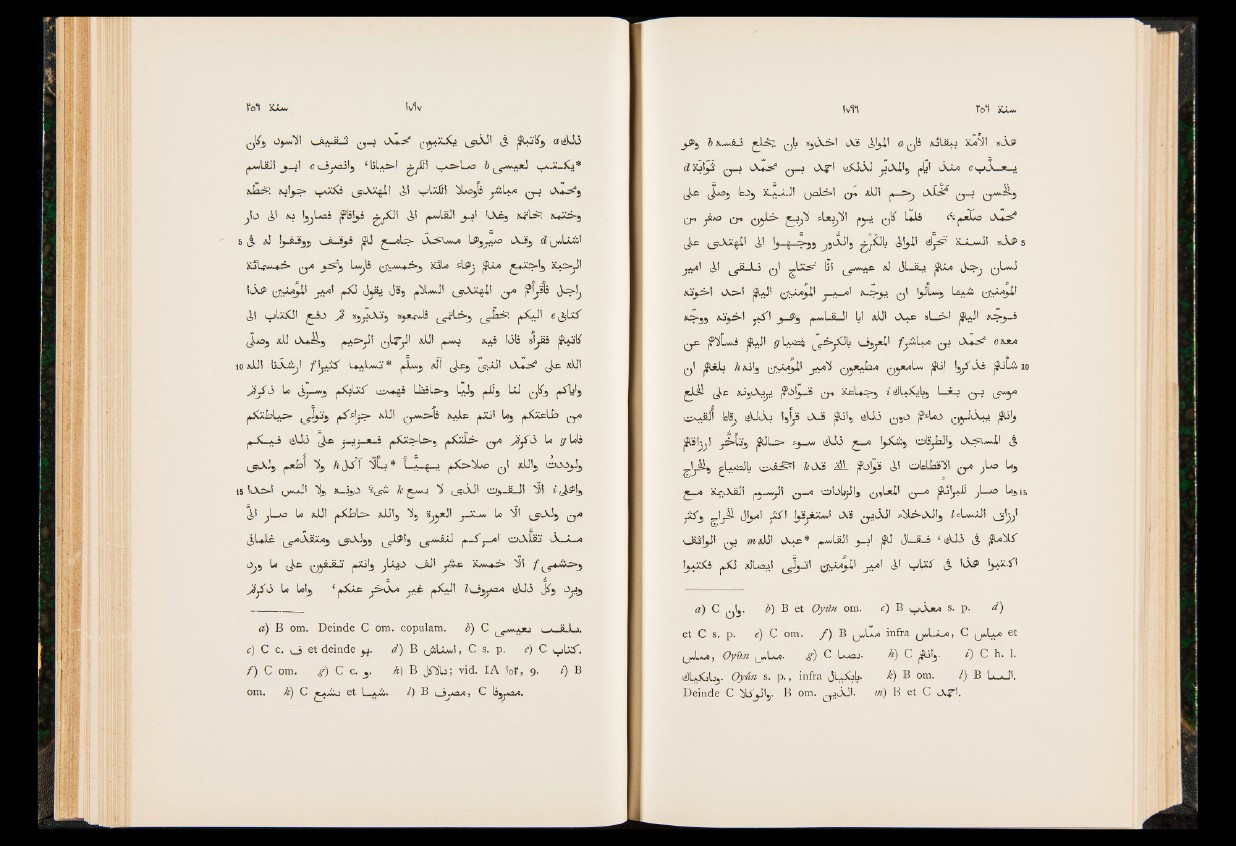 سنة ٢٥٦ ١٧٩٦
هذه الأمّة ببقائه فان a الموالى قد اخذوه بان يخلع نفسه b وهو
يعذّب c منذ ايّام والمدبّر لذلك احمد بن محمّد بن ثوابة d
والحسن بن مخلّد رحم الله مَن اخلص النيّة ودعا وصلّى على
محمّد صلّعم ۞ فلمّا كان يوم الاربعاء لاربع خلون من صفر من
5 هذه السنة تحرّك الموالى بالكرخ والدور ووجّهوا الى المهتدى على
لسان رجل منهم يقال له عيسى انّا نحتاج ان نلقى الى امير
المؤمنين شيئا وسألوا ان يوجّه امير المؤمنين اليهم احد اخوته
فوجّه اليهم اخاه عبد الله ابا القاسم وهو اكبر اخوته ووجّه
معه e محمّد بن مباشر f المعروف بالكرخىّ فمضيا g اليهم فسألاهم عن
10 شأنهم فذكروا انهم سامعون مطيعون لامير المؤمنين وانه h بلغهم ان
موسى بن بغا وبايكباك i وجماعة من قوّادهم يريدونه على الخلع
وانهم يبذلون دماءهم دون ذلك وانهم قد قرأوا بذلك رقاعا ألقيت
فى المسجد والطرقات وشكوا مع ذلك سوء حالهم وتأخّر ارزاقهم
وما صار من الاقطاعات الى قوّادهم التى قد k اجحفت بالضياع والخراج
15 وما صار لكبرائهم من المعاون والزيادات من الرسوم القديمة مع
ارزاق النساء l والدخلاء الذين قد استغرقوا اكثر اموال الخراج وكثر
كلامهم فى ذلك، فقال لهم ابو القاسم *عبد الله m بن الواثق
اكتبوا هذا فى كتاب الى امير المؤمنين اتولّى ايصاله لكم فكتبوا
a) C وان. b) B et Oyûn om. c) B معذب s. p. d)
et C s. p. e) C om. f) B infra C et
Oyûn g) C h) C وانهم. i) C h. l.
Oyûn s. p., infra k) B om. l) B
Deinde C والوكلا. B om. الذين. m) B et C احمد.
سنة ٢٥٦ ١٧٩٧
ذلك a وكاتبهم فى الذى يكتبون محمّد بن ثقيف الاسود وكان
*يكتب لعيسى b صاحب الكرخ احيانا، وانصرف c ابو القاسم
ومحمّد بن مباشر فأوصلا الكتاب الى المهتدى فكتب جوابه بخطّه
وختمه بخاتمه وغدا ابو القاسم الى الكرخ فوافاهم فصاروا به الى دار
5 اشناس d وقد صيّروها مسجد جامع لهم فوقف ووقفوا له فى
الرحبة واجتمع منهم زهاء مائة وخمسين فارسا ونحو من خمسمائة
راجل فأقرأهم من المهتدى السلام وقال يقول لكم امير المؤمنين هذا
كتابى e اليكم بخطّى وخاتمى فاسمعوه وتدبّروه ثم دفع الكتاب الى
كاتبهم فقرأه فاذا فيه بسم الله الرحمن الرحيم والحمد لله وصلّى
10 الله على محمّد النبىّ وعلى آله وسلّم *تسليما كثيرا f ارشدنا الله
وايّاكم وكان لنا ولكم وليّا وحافظا فهمت كتابكم وسرّنى ما ذكرتم
من طاعتكم وما انتم عليه فأحسن الله جزاءكم وتولّى حياطتكم
فاما g ما ذكرتم من خلّتكم وحاجتكم فعزيز علىّ ذلك فيكم
ولوددتُ والله ان صلاحكم يهيّأ *بألّا آكل h ولا أطعم ولدى
15 واهلى i الّا القوت الذى لا يسع k شىء دونه ولا البس احدا
من ولدى الّا ما ستر العورة ولا والله ما حاطكم الله ما صار الىّ
منذ تقلّدت امركم لنفسى واهلى وولدى ومتقدّمى غلمانى
وحشمى f الّا خمسة عشر الف دينار وانتم تقفون على ما ورد
ويرد وكلّ ذلك مصروف l اليكم غير مدّخر عنكم، واما ما ذكرتم
a) B om. Deinde C om. copulam. b) C يلقب بعيسى.
c) C c. ف et deinde بو. d) B اسناس, C s. p. e) C كتاب.
f) C om. g) C c. و. h) B بالاكل; vid. IA ١٥٢, 9. i) B
om. k) C et شيا. l) B مصرف, C مصروفا.